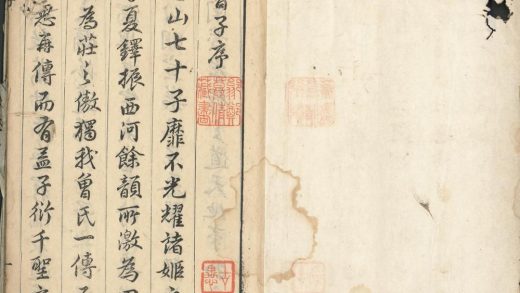 子序
山七十子靡不光耀諸姬
夏鐸振西河餘韻所激為
為莊之傲獨我曾氏一傳
思再傳而有孟子衍千聖